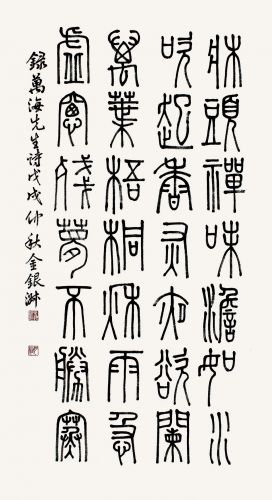 牀頭禪味澹如水
吹起香灰夜欲闌
萬葉梧桐秋雨急
虛窓殘夢不勝寒
錄萬海先生詩戊戌仲秋金銀